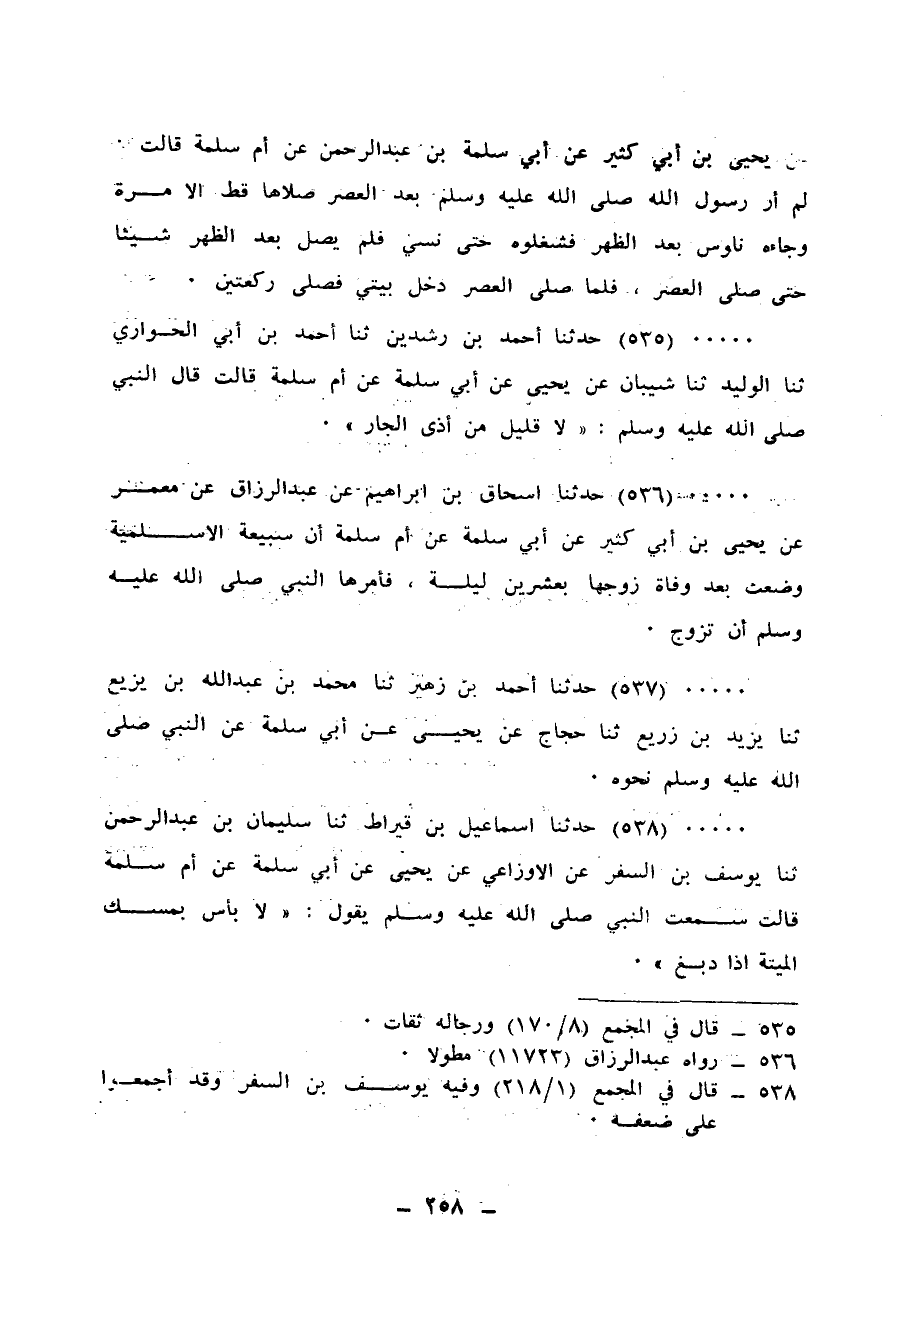 عن يحيى بن أبي كثير عن أبي سلمة بن عبدالرحمن عن أم سلمة قالت :
لم أر رسول الله صلى الله عليه وسلم بعد العصر صلاها قط الا مـــرة
وجاءه ناوس بعد الظهر فشغلوه حتى نسي فلم يصل بعد الظهر شـــيئا
حتى صلى العصر ، فلما صلى العصر دخل بيتي فصلى ركعتين ٠
٠٠٠٠٠ (٥٣٥) حدثنا أحمد بن رشدين ثنا أحمد بن أبي الحـواري
ثنا الوليد ثنا شيبان عن يحيى عن أبي سلمة عن أم سلمة قالت قال النبي
صلى الله عليه وسلم : « لا قليل من أذى الجار » ٠
٠٠٠٠٠ (٥٣٦) حدثنا اسحاق بن ابراهيم عن عبدالرزاق عن معمـــر
عن يحيى بن أبي كثير عن أبي سلمة عن أم سلمة أن سبيعة الاســـلمية
وضعت بعد وفاة زوجها بعشرين ليلـــة ، فأمرها النبي صلى الله عليـه
وسلم أن تزوج ٠
٠٠٠٠٠ (٥٣٧) حدثنا أحمد بن زهير ثنا محمد بن عبدالله بن بزيع
ثنا يزيد بن زريع ثنا حجاج عن يحيـــى عـــن أبي سلمة عن النبي صلى
الله عليه وسلم نحوه ٠
٠٠٠٠٠ (٥٣٨) حدثنا اسماعيل بن قيراط ثنا سليمان بن عبدالرحمن
ثنا يوسف بن السفر عن الاوزاعي عن يحيى عن أبي سلمة عن أم ســلمة
قالت ســـمعت النبي صلى الله عليه وســلم يقول : « لا بأس بمســـك
الميتة اذا دبــغ » ٠
٥٣٥ ــ قال في المجمع (١٧٠/٨) ورجاله ثقات ٠
٥٣٦ ــ رواه عبدالرزاق (١١٧٢٣) مطولا ٠
٥٣٨ ــ قال في المجمع (٢١٨/١) وفيه يوســـف بن السفر وقد أجمعـوا
على ضعفــه ٠
ــ ٢٥٨ ــ